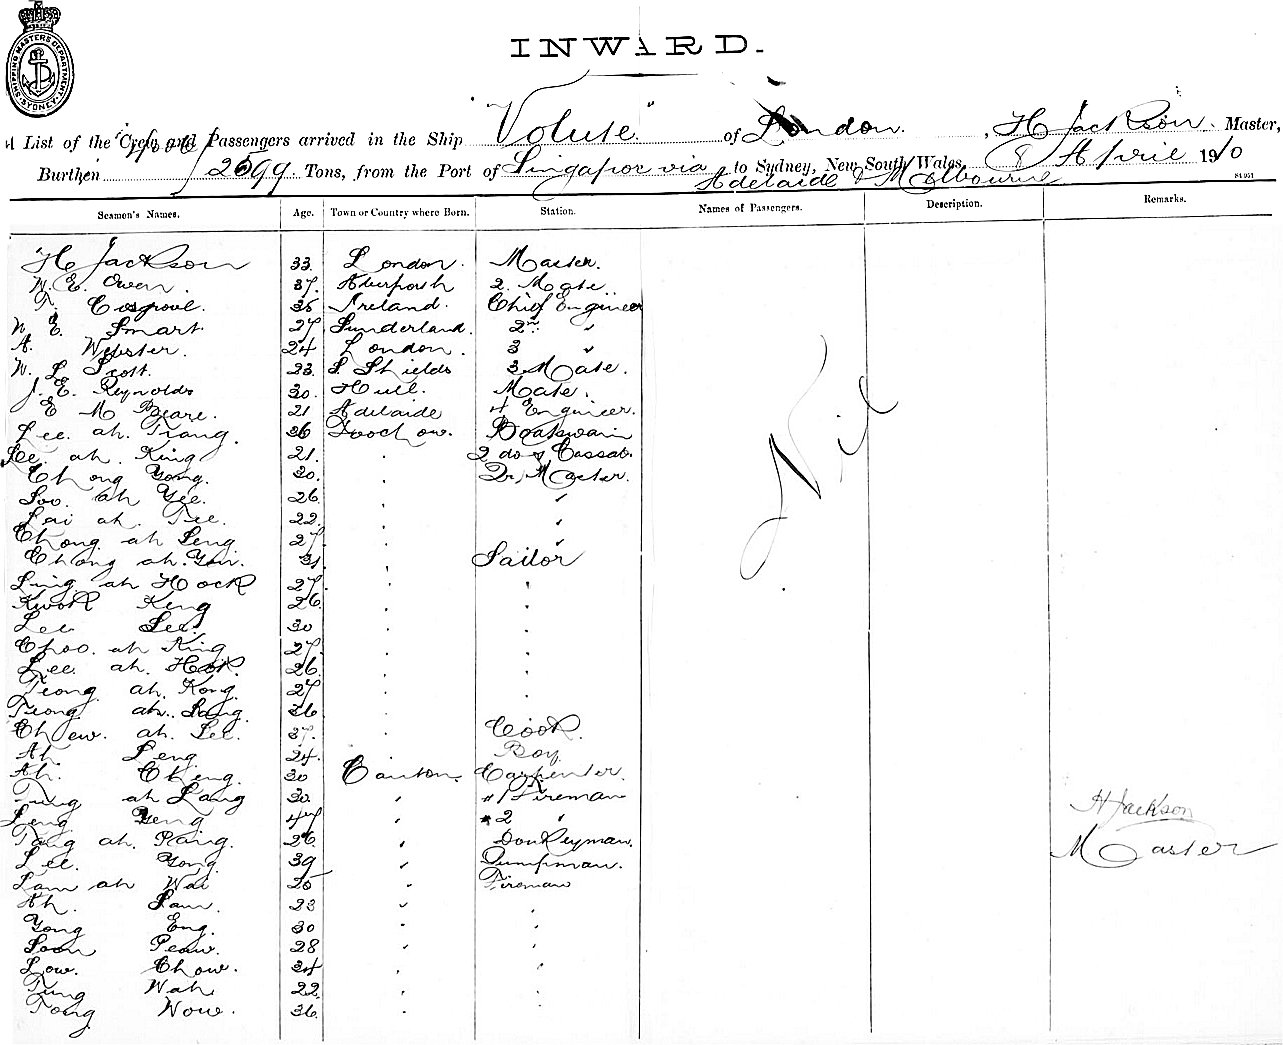 SHIPPING MASTERS DEPARTMENT SYDNEY
INWARD.
A List of the Crew and Passengers arrived in the Ship "Volute" of London, H Jackson Master,
Burthen 2699 Tons, from the Port of Singapore via to Sydney, New South Wales, 8 April 1910
Adelaide & Melbourne
Seamen's Names. Age. Town or Country where Born. Station. Names of Passengers. Description. Remarks.
H Jackson 33 London. Master.
W. E. Owen. 37. Aberporth 2. Mate
T. Cosgrove. 35 Ireland. Chief Engineer
W E. Smart. 27 Sunderland. 2nd "
A. Webster. 24 London. 3 "
W. L Scott. 23. S. Shields 3 Mate.
J. E. Reynolds 30. Hull. Mate.
E M Beare. 21 Adelaide 4 Engineer.
Lee. ah. Tiang. 36 Foochow. Boatswain
Lee. ah. King 21. 2 do & Cassab.
Chong Yong. 30. Qr. Master.
Soo. ah Yee. 26 "
Lai ah. Tee. 22. "
Chong ah Seng 27 "
Chong ah. Yon. 31 Sailor
Ling ah Hock 27
Kwok Keng 26
Lee See. 30
Choo. ah King 27.
Lee. ah. Hok. 26
Tiong ah. Kong. 27
Tiong ah. Sang. 36
Chew. ah. Lee. 37. Cook.
Ah. Leng. 24. Boy.
Ah. Cheng. 30 Canton. Carpenter.
Tung ah Lang 30. " #1 Fireman
Leng Yeng 47 " #2 "
Tang ah. Paing. 26. Donkeyman.
Lee. Yong. 39 " Pumpman.
Lam ah Wai 25 " Fireman
Ah. Sam. 23 "
Yong Eng. 30 "
Soon Peaw. 28 "
Low. Chow. 34
Tung Wah 22
Tong Wow. 36.
Nil
H Jackson
Master